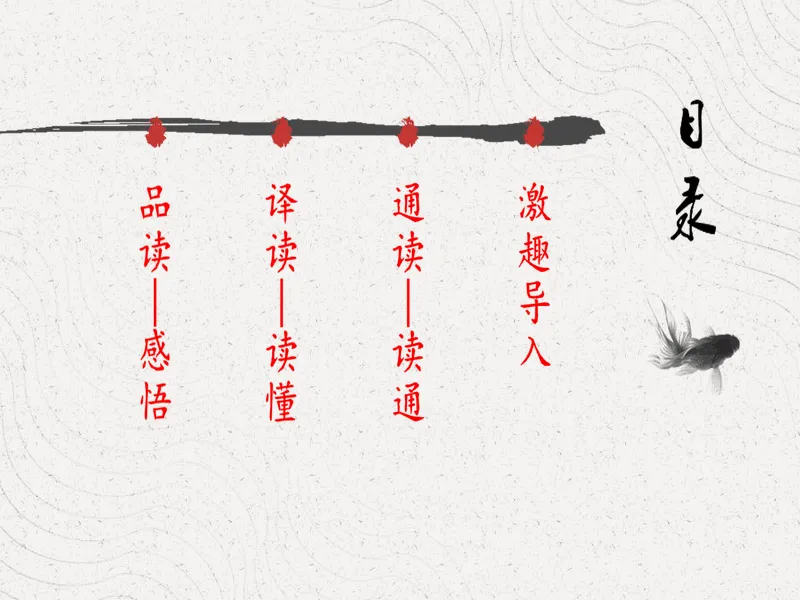 目录
激趣导入
通读—读通
译读—读懂
品读—感悟